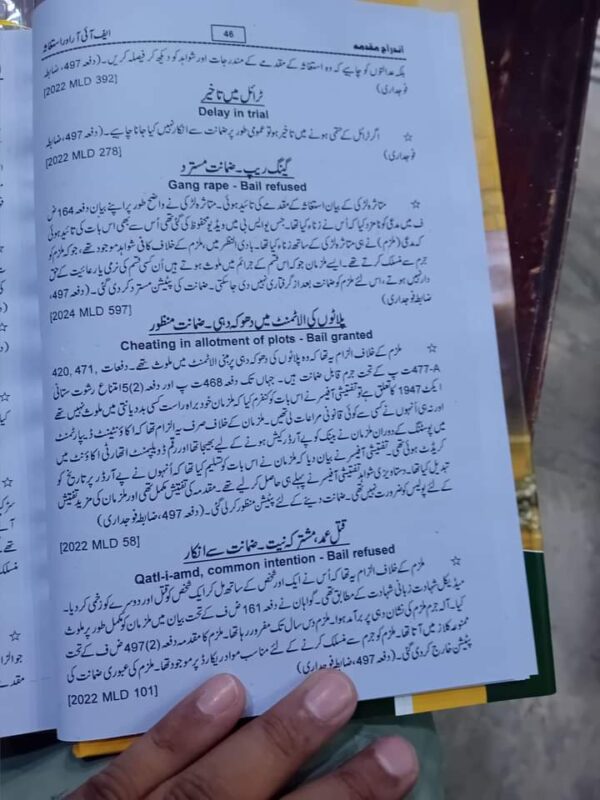 اندراج مقدمہ 46 ایف آئی آر اور استغاثہ
بلکہ عدالتوں کو چاہیے کہ وہ استغاثہ کے مقدمے کے مندرجات اور شواہد کو دیکھ کر فیصلہ کریں۔ (دفعہ 497، ضابطہ
فوجداری) [2022 MLD 392]
ٹرائل میں تاخیر
Delay in trial
☆ اگر ٹرائل کے حتمی ہونے میں تاخیر ہو تو عمومی طور پر ضمانت سے انکار نہیں کیا جانا چاہیے۔ (دفعہ 497، ضابطہ
فوجداری) [2022 MLD 278]
گینگ ریپ۔ ضمانت مسترد
Gang rape - Bail refused
☆ متاثرہ لڑکی کے بیان استغاثہ کے مقدمے کی تائید ہوئی۔ متاثرہ لڑکی نے واضح طور پر اپنے بیان دفعہ 164 ض
ف میں مدعی کو نامزد کیا کہ اُس نے زناء کیا تھا۔ جس یو ایس بی میں ویڈیو محفوظ کی گئی تھی اُس سے بھی اس بات کی تائید ہوئی
کہ مدعی (ملزم) نے ہی متاثرہ لڑکی کے ساتھ زناء کیا تھا۔ بادی النظر میں، ملزم کے خلاف کافی شواہد موجود تھے، جو کہ ملزم کو
جرم سے منسلک کرتے تھے۔ ایسے ملزمان جو کہ اس قسم کے جرائم میں ملوث ہوتے ہیں اُن کسی قسم کی نرمی یا رعائیت کے حق
دار نہیں ہوتے، اس لئے ملزم کو ضمانت بعد از گرفتاری نہیں دی جا سکتی۔ ضمانت کی پٹیشن مسترد کر دی گئی۔ (دفعہ 497،
ضابطہ فوجداری) [2024 MLD 597]
پلاٹوں کی الاٹمنٹ میں دھوکہ دہی۔ ضمانت منظور
Cheating in allotment of plots - Bail granted
☆ ملزم کے خلاف الزام یہ تھا کہ وہ پلاٹوں کی دھوکہ دہی پر مبنی الاٹمنٹ میں ملوث تھے۔ دفعات 420, 471,
477-A ت پ کے تحت جرم قابل ضمانت ہیں۔ جہاں تک دفعہ 468 ت پ اور دفعہ 5(2) امتناع رشوت ستانی
ایکٹ 1947 کا تعلق ہے تو تفتیشی آفیسر نے اس بات کو کنفرم کیا کہ ملزمان خود براہ راست کسی بد دیانتی میں ملوث نہیں تھے
اور نہ ہی اُنہوں نے کسی سے کوئی قانونی مراعات لی تھیں۔ ملزمان کے خلاف صرف یہ الزام تھا کہ اکاؤنٹینٹ ڈیپارٹمنٹ
میں پوسٹنگ کے دوران ملزمان نے بینک کو پے آرڈر کیش ہونے کے لیے بھیجا تھا اور رقم ڈویلپمنٹ اتھارٹی اکاؤنٹ میں
کریڈٹ ہوئی تھی۔ تفتیشی آفیسر نے بیان دیا کہ ملزمان نے اس بات کو تسلیم کیا تھا کہ اُنہوں نے پے آرڈر پر تاریخ کو
تبدیل کیا تھا۔ دستاویزی شواہد تفتیشی آفیسر نے پہلے ہی حاصل کر لیے تھے۔ مقدمہ کی تفتیش مکمل تھی اور ملزمان کی مزید تفتیش
کے لئے پولیس کو ضرورت نہیں تھی۔ ضمانت دینے کے لئے پٹیشن منظور کر لی گئی۔ (دفعہ 497، ضابطہ فوجداری)
[2022 MLD 58]
قتل عمد، مشترکہ نیت۔ ضمانت سے انکار
Qatl-i-amd, common intention - Bail refused
☆ ملزم کے خلاف الزام یہ تھا کہ اُس نے ایک اور شخص کے ساتھ مل کر ایک شخص کو قتل اور دوسرے کو زخمی کر دیا۔
میڈیکل شہادت زبانی شہادت کے مطابق تھی۔ گواہان نے دفعہ 161 ض ف کے تحت بیان میں ملزمان کو مکمل طور پر ملوث
کیا۔ آلہ جرم ملزم کی نشان دہی پر برآمد ہوا۔ ملزم دس سال تک مفرور رہا تھا۔ ملزم کا مقدمہ دفعہ 497(2) ض ف کے تحت
ممنوعہ کلاز میں آتا تھا۔ ملزم کو جرم سے منسلک کرنے کے لئے مناسب مواد ریکارڈ پر موجود تھا۔ ملزم کی عبوری ضمانت کی
پٹیشن خارج کر دی گئی۔ (دفعہ 497، ضابطہ فوجداری)
[2022 MLD 101]